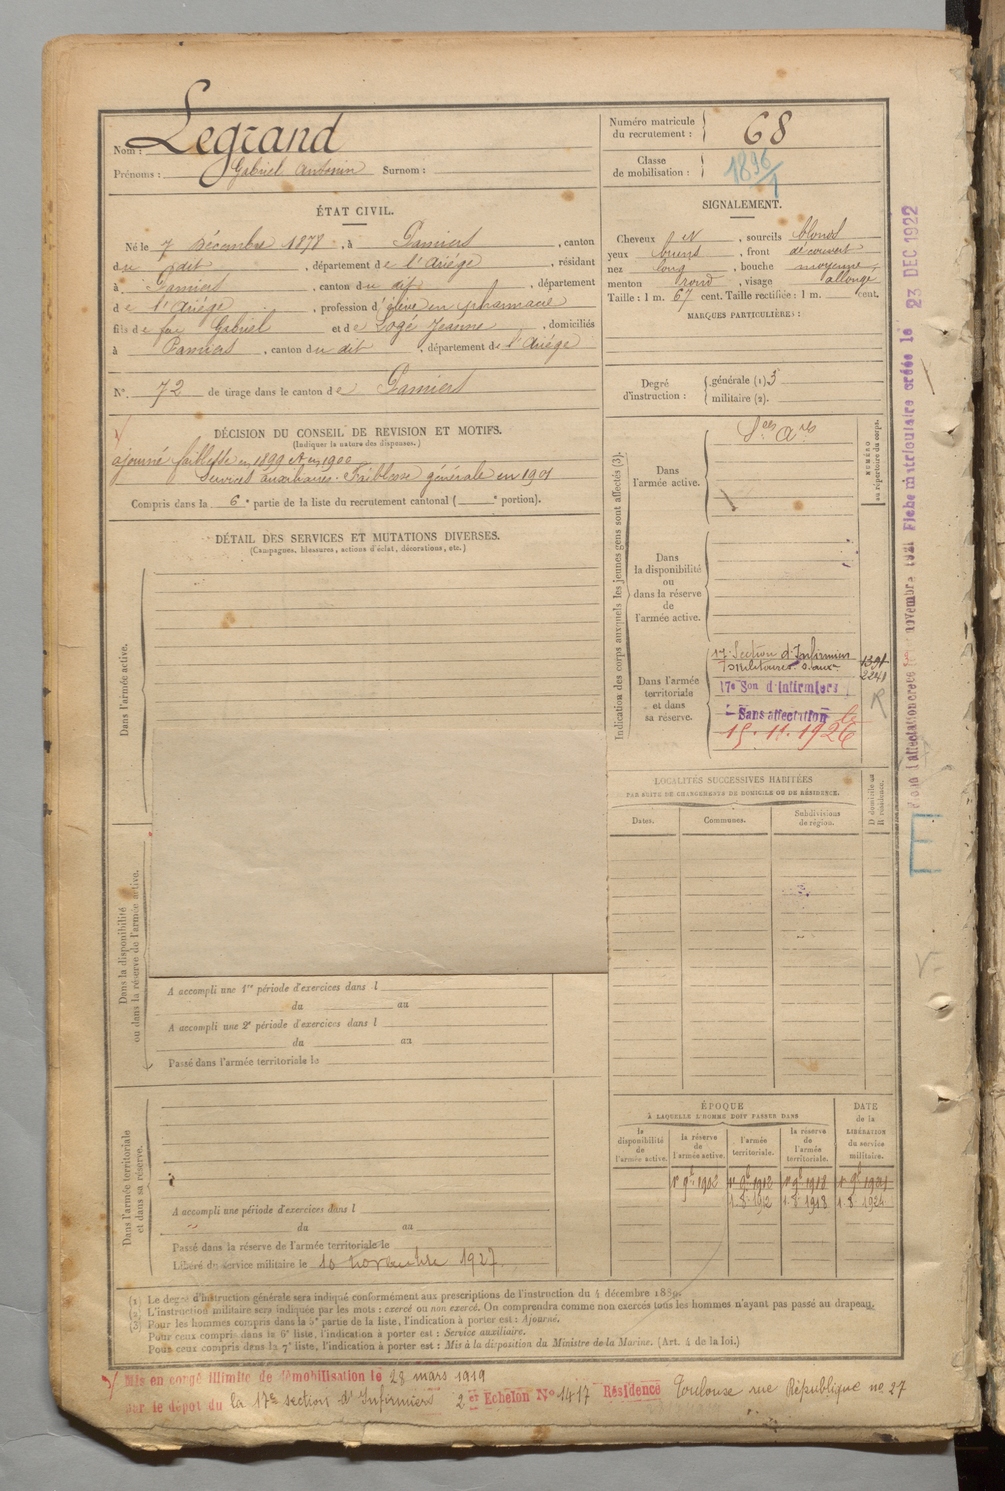 Nom : Legrand
Prénoms : Gabriel Antonin Surnom :
Numéro matricule
du recrutement : 68
Classe
de mobilisation : 1896/1
ÉTAT CIVIL.
Né le 7 Décembre 1878, à Pamiers, canton
du dit, département de l'Ariége, résidant
à Pamiers, canton du dit, département
de l'Ariége, profession d'élève en pharmacie
fils de feu Gabriel et de Logé Jeanne, domiciliés
à Pamiers, canton du dit, département de l'Ariége
N° 72 de tirage dans le canton de Pamiers
SIGNALEMENT.
Cheveux et N, sourcils blonds
yeux bruns, front découvert
nez long, bouche moyenne
menton rond, visage allongé
Taille : 1 m. 67 cent. Taille rectifiée : 1 m. cent.
MARQUES PARTICULIÈRES :
Degré
d'instruction :
générale (1) 3
militaire (2).
DÉCISION DU CONSEIL DE REVISION ET MOTIFS.
(Indiquer la nature des dispenses.)
ajourné faiblesse en 1899 et en 1900
Services auxiliaires. Faiblesse générale en 1901
Compris dans la 6e partie de la liste du recrutement cantonal ( e portion).
DÉTAIL DES SERVICES ET MUTATIONS DIVERSES.
(Campagnes, blessures, actions d'éclat, décorations, etc.)
Dans l'armée active.
Dans la disponibilité
ou dans la réserve de l'armée active.
A accompli une 1re période d'exercices dans l
du au
A accompli une 2e période d'exercices dans l
du au
Passé dans l'armée territoriale le
Dans l'armée territoriale
et dans sa réserve.
A accompli une période d'exercices dans l
du au
Passé dans la réserve de l'armée territoriale le
Libéré du service militaire le 10 novembre 1927
Indication des corps auxquels les jeunes gens sont affectés (3).
NUMÉRO
au répertoire du corps.
Dans
l'armée active.
Dans
la disponibilité
ou
dans la réserve
de
l'armée active.
Dans l'armée
territoriale
et dans
sa réserve.
17e Section d'Infirmiers
militaires S. aux
1391
2241
R
17e Son d'Infirmiers
Sans affectation le
15.11.1926
LOCALITÉS SUCCESSIVES HABITÉES
PAR SUITE DE CHANGEMENTS DE DOMICILE OU DE RÉSIDENCE.
Dates. Communes. Subdivisions
de région.
D domicile ou
R résidence.
ÉPOQUE
À LAQUELLE L'HOMME DOIT PASSER DANS
DATE
de la
LIBÉRATION
du service
militaire.
la
disponibilité
de
l'armée active.
la réserve
de
l'armée active.
l'armée
territoriale.
la réserve
de
l'armée
territoriale.
1er 9bre 1902 1er 9bre 1912 1er 9bre 1918
1. 8. 1912 1. 8. 1918 1 8 1924
(1) Le degré d'instruction générale sera indiqué conformément aux prescriptions de l'instruction du 4 décembre 1889.
(2) L'instruction militaire sera indiquée par les mots : exercé ou non exercé. On comprendra comme non exercés tous les hommes n'ayant pas passé au drapeau.
(3) Pour les hommes compris dans la 5e partie de la liste, l'indication à porter est : Ajourné.
Pour ceux compris dans la 6e liste, l'indication à porter est : Service auxiliaire.
Pour ceux compris dans la 7e liste, l'indication à porter est : Mis à la disposition du Ministre de la Marine. (Art. 4 de la loi.)
Mis en congé illimité de démobilisation le 28 mars 1919
par le dépôt du la 17e section d'Infirmiers 2er Echelon N° 1417 Résidence Toulouse rue République no 27
novembre 1921 Fiche matriculaire créée le 23 DEC 1922